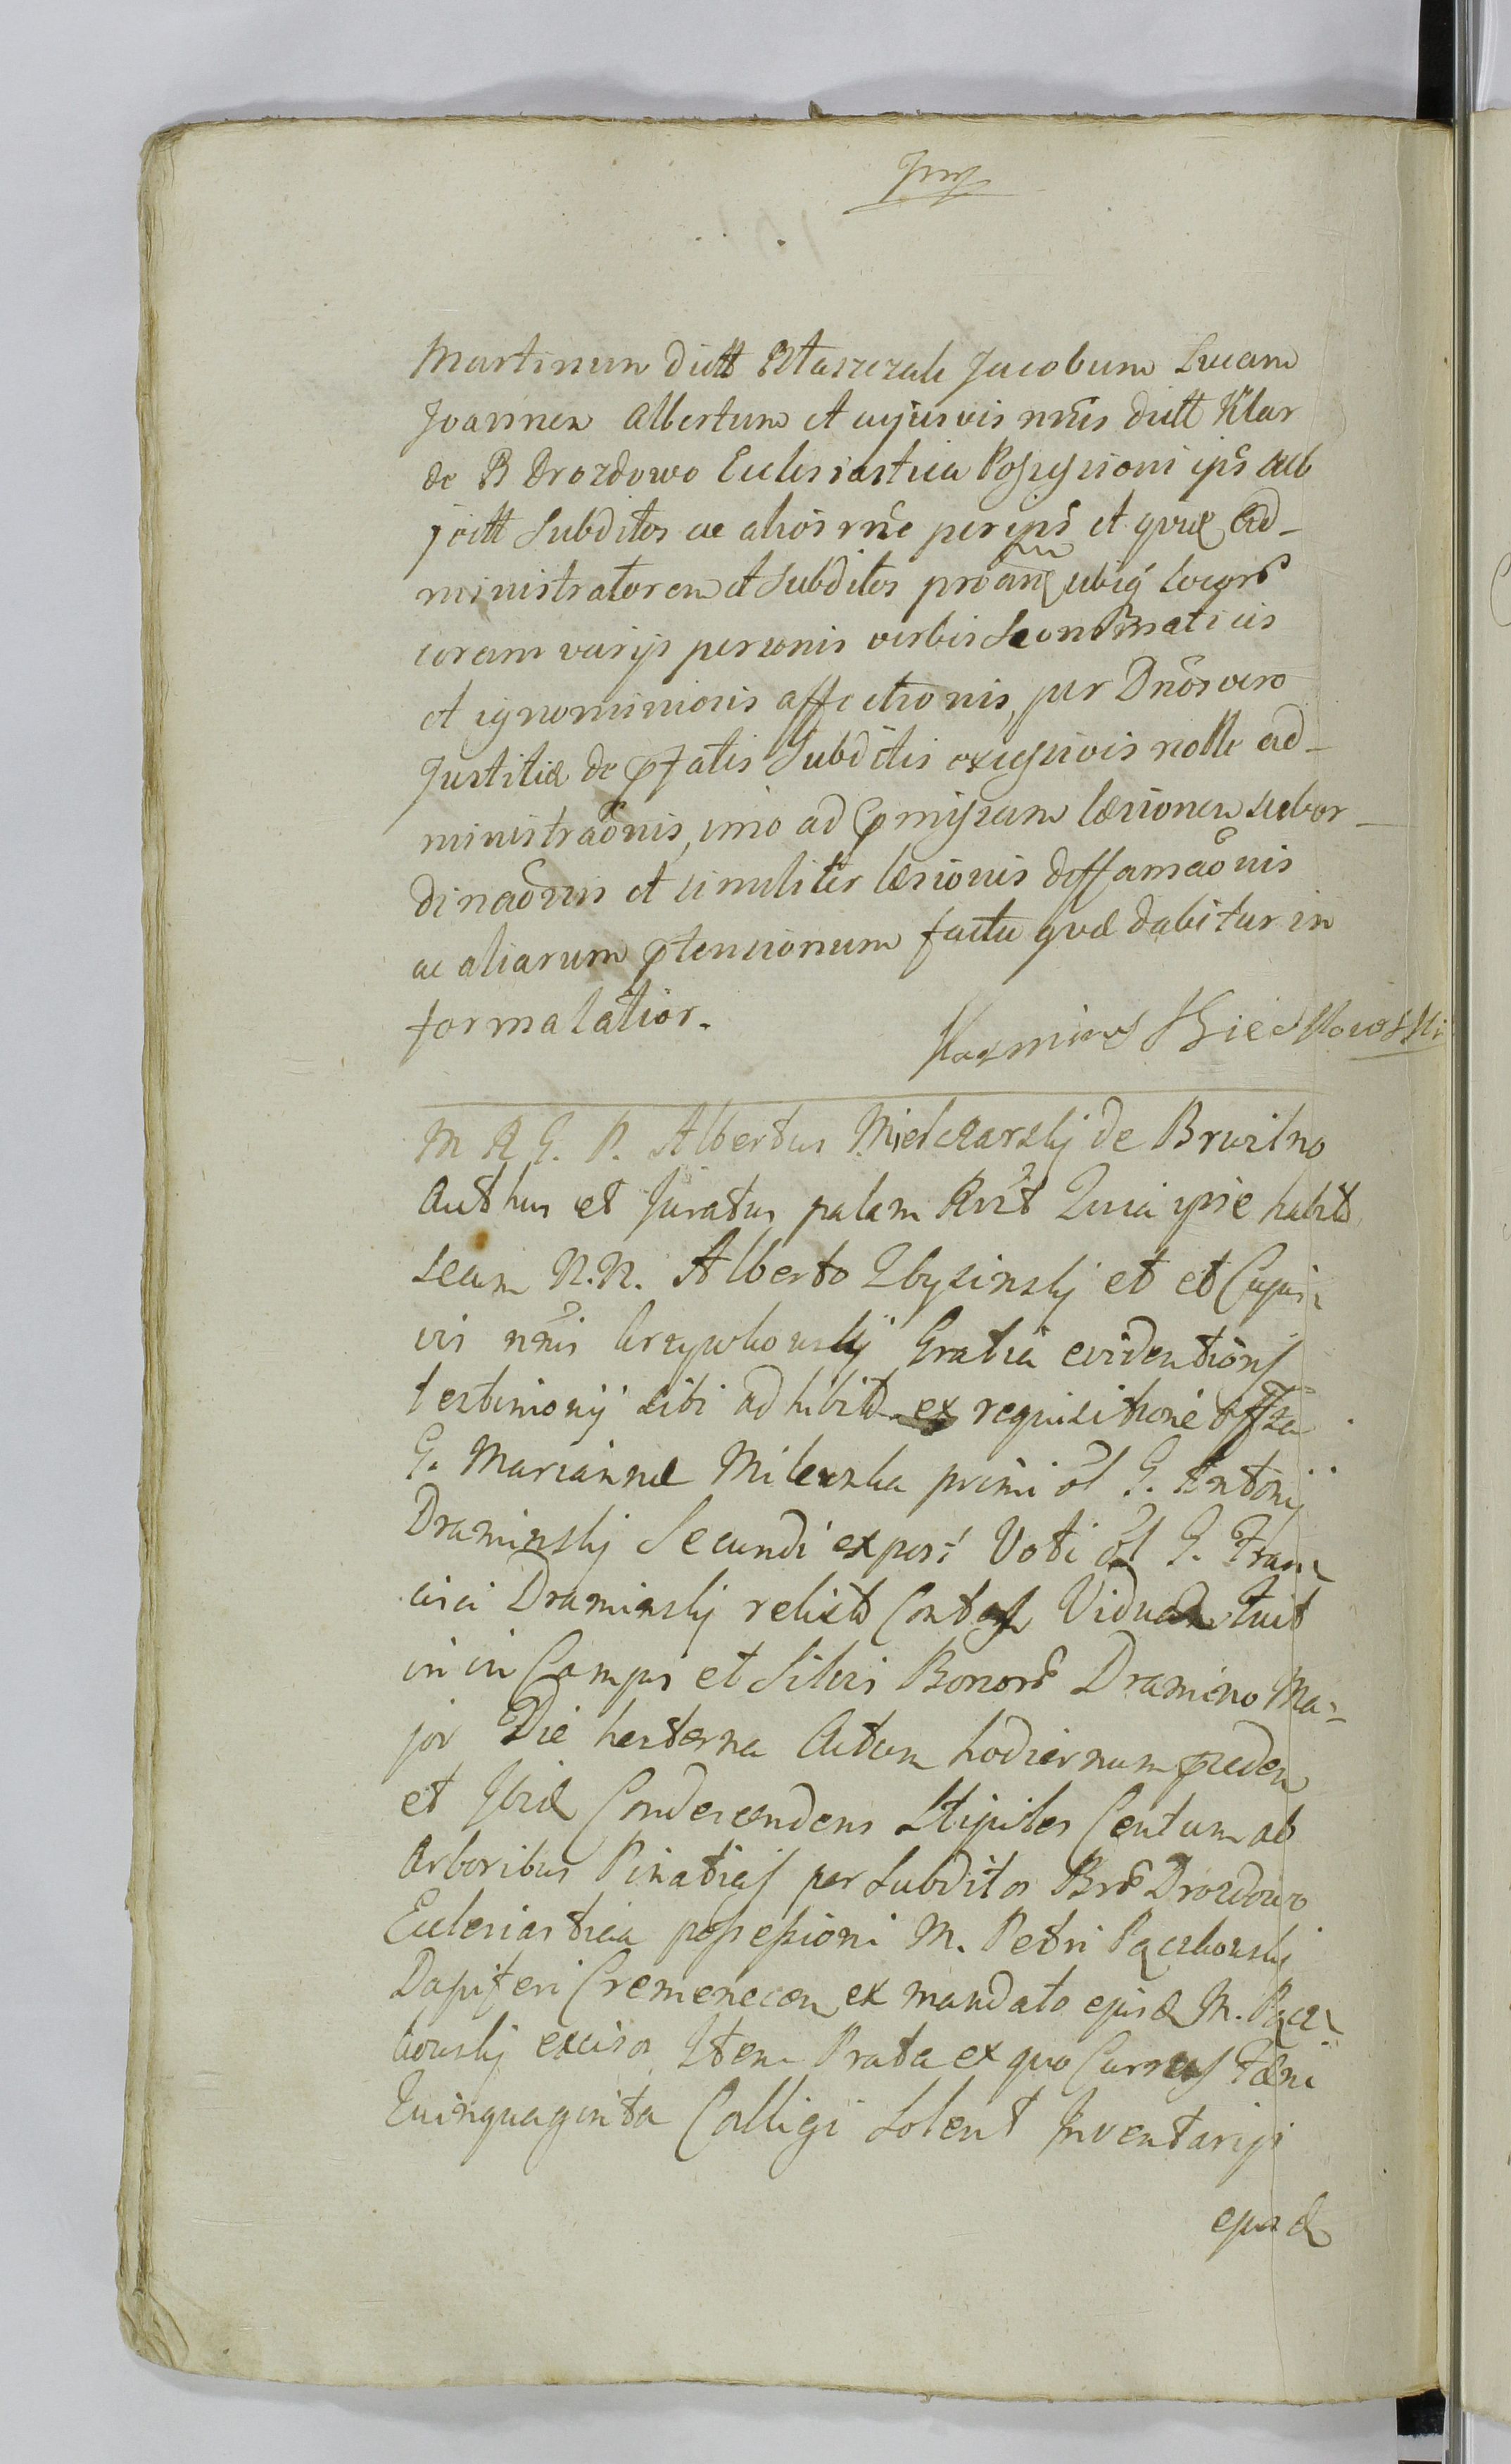 Martinum dictt Ptaszczak Jacobum Lucam
Joannem Albertum et cujusvis nnis dictt Klar
de B Drozdowo Ecclesiastica Possessioni ips sub
jectt Subditos ac alios rne per eps et qvae Ad-
ministratorem et Subditos proang ubiq locor
coram varijs personis verbis Scommaticis
et ignominiosis affectionis, per Dnos vero
Justitiae de pfatis Subditis exigsivis nolle ad-
ministraonis, imo ad pmissam laesionem subor-
dinaonis et similiter laesionis deffamaonis
ac aliarum ptensionum facta qvae dabitur in
forma latior.
M R G. P. Albertus Mielczarskj de Brwilno
Authus et Juratus palam Rvit Quia ipse habit
secum N.N. Alberto Zbyszinskj et et Cujus
vis nnis Krzywkowskj Gratia evidentions
testimonij sibi adhibit ex requisitione offsa
G. Mariannae Milewska primi ol G. Antonj
Draminskj Secundi expost Voti ol G. Fran
cisci Draminskj relict Contgs Viduae Fuit
in in Campis et Silvis Bonor Dramino Ma=
jor Die hesterna Actum hodiernum pceden
et Ibid Condescendens Stipites Centum ab
Arboribus Pinatias per Subditos Bnr Drozdowo
Ecclesiastica possessioni M. Petri Pączkowskj
Dapiferi Cremenecen ex mandato ejusd M. Pącz
kowskj excisos Item Prata ex quo Currus Faeni
Quinquaginta Colligi Solent Inventaripi
ejusd